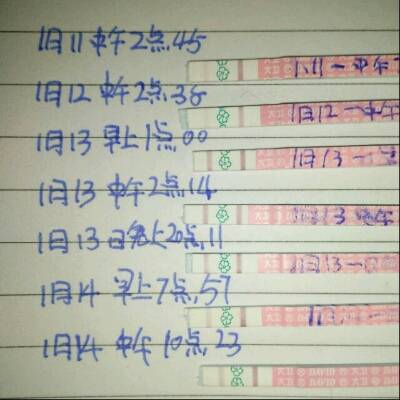 1月11中午2点.45
1月12中午2点.38
1月13早上1点.00
1月13中午2点.14
1月13日晚上20点.11
1月14早上7点.57
1月14中午10点.23
1.11一中午
1月12一中午
1月13一
1月13中午
1月13一